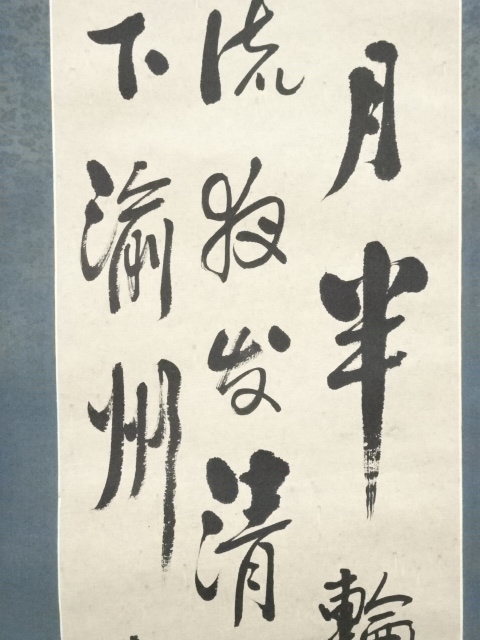 月半輪
流夜发清
下渝州